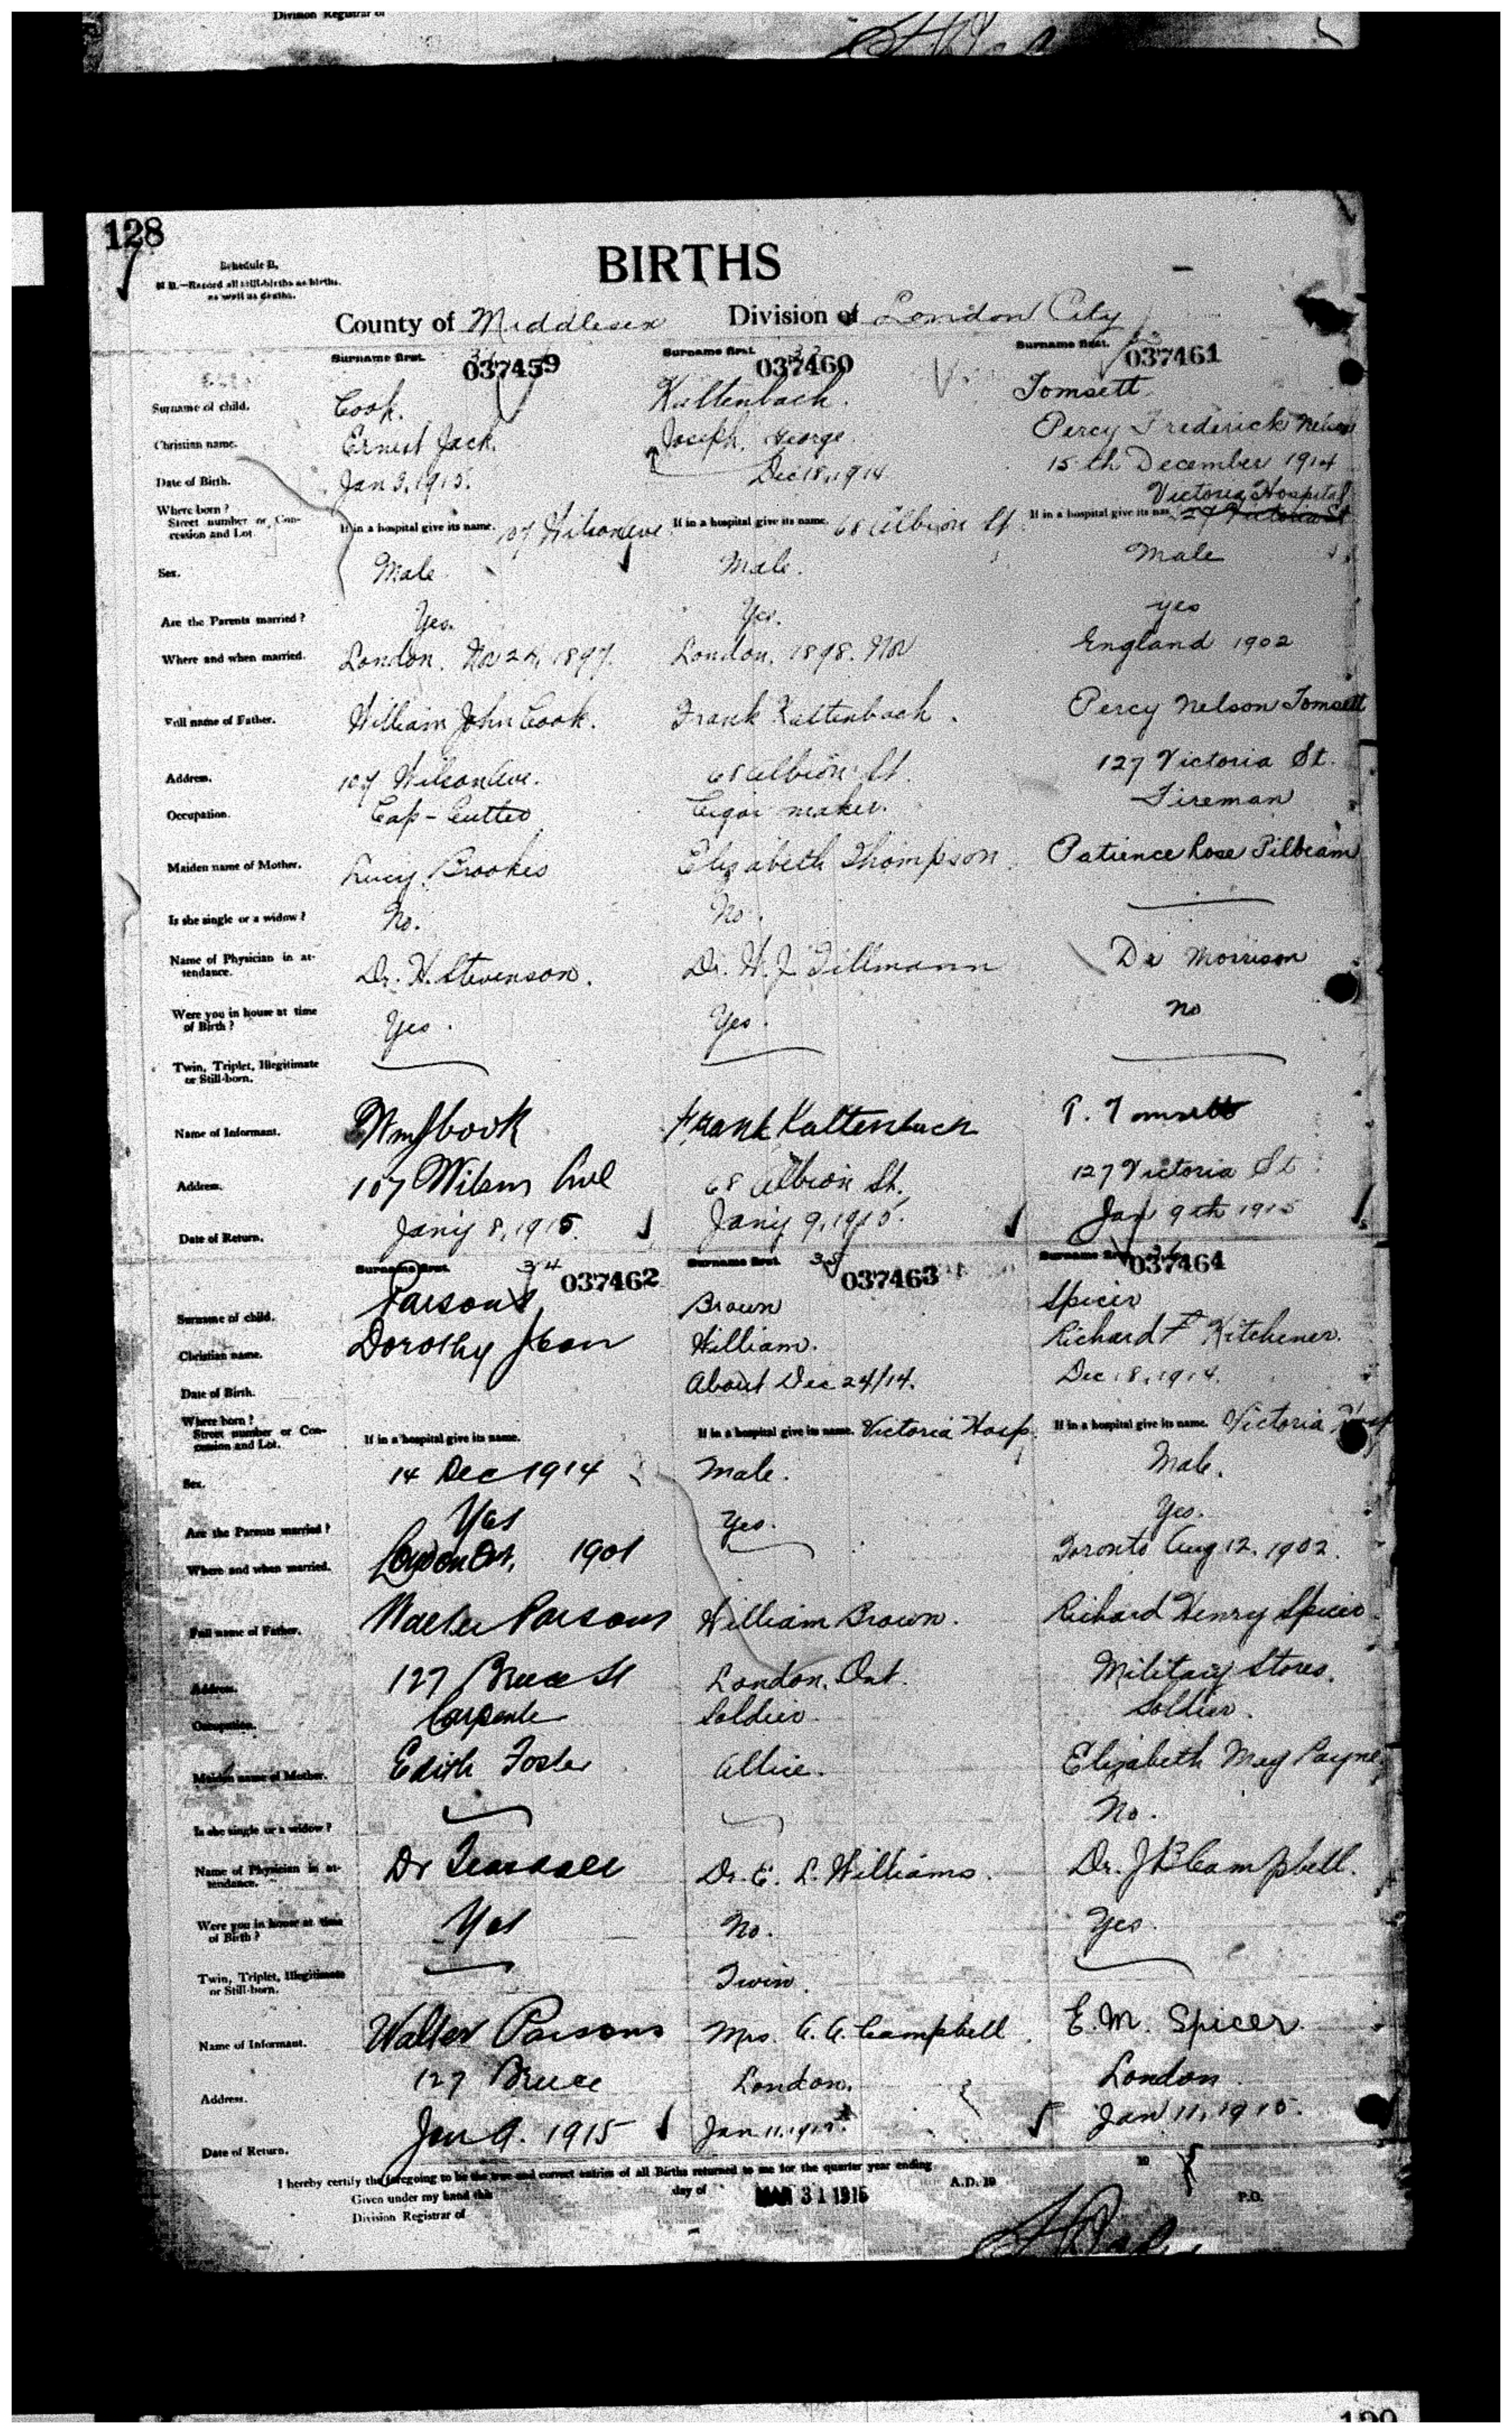 Division Registrar of
128
Schedule B.
N B.—Record all still-births as births.
as well as deaths.
BIRTHS
County of Middlesex Division of London City
Surname first. 037459 Surname first. 037460 Surname first. 037461
Surname of child. Cook. Kaltenbach. Tomsett
Christian name. Ernest Jack. Joseph. George Percy Frederick Nelson
Date of Birth. Jan 3, 1915. Dec 18, 1914 15th December 1914
Victoria Hospital
Where born?
Street number or Con-
cession and Lot
If in a hospital give its name. 107 Wilson Ave If in a hospital give its name. 68 Albion St If in a hospital give its 127 Victoria St
Sex. Male Male. Male
Are the Parents married? Yes. Yes. yes
Where and when married. London. Nov 24, 1897. London, 1898. Nov England 1902
Full name of Father. William John Cook. Frank Kaltenbach. Percy Nelson Tomsett
Address. 107 Wilson Ave. 68 Albion St. 127 Victoria St.
Occupation. Cap-Cutter Cigar maker. Fireman
Maiden name of Mother. Lucy Brookes Elizabeth Thompson Patience Rose Pilbeam
Is she single or a widow? No. No.
Name of Physician in at-
tendance. Dr. H. Stevenson. Dr. W. J. Tillmann Dr Morrison
Were you in house at time
of Birth? Yes. Yes. no
Twin, Triplet, Illegitimate
or Still-born.
Name of Informant. Wm J Cook Frank Kaltenbach P. Tomsett
Address. 107 Wilson Ave 68 Albion St. 127 Victoria St
Date of Return. Jan'y 8, 1915. Jan'y 9, 1915. Jan 9th 1915
Surname first. 34 037462 Surname first. 35 037463 Surname first. 36 037464
Surname of child. Parsons Brown Spicer
Christian name. Dorothy Jean William. Richard F Kitchener.
Date of Birth. About Dec 24/14. Dec 18, 1914.
Where born?
Street number or Con-
cession and Lot.
If in a hospital give its name. If in a hospital give its name. Victoria Hosp. If in a hospital give its name. Victoria Hosp
Sex. 14 Dec 1914 Male. Male.
Are the Parents married? Yes Yes. Yes.
Where and when married. London Ont, 1901 Toronto Aug 12, 1902.
Full name of Father. Walter Parsons William Brown. Richard Henry Spicer
Address. 127 Bruce St London, Ont. Military Stores.
Occupation. Carpente Soldier Soldier.
Maiden name of Mother. Edith Foster Allice. Elizabeth May Payne
Is she single or a widow? No.
Name of Physician in at-
tendance. Dr Teasdall Dr. E. L. Williams. Dr. J B Campbell.
Were you in house at time
of Birth? Yes No. Yes.
Twin, Triplet, Illegitimate
or Still-born. Twin.
Name of Informant. Walter Parsons Mrs. A. A. Campbell. E. M. Spicer.
Address. 127 Bruce London. London
Date of Return. Jan 9. 1915 Jan 11, 1915. Jan 11, 1915.
I hereby certify the foregoing to be the true and correct entries of all Births returned to me for the quarter year ending 19
Given under my hand this day of MAR 31 1915 A.D. 19
Division Registrar of P.O.
129